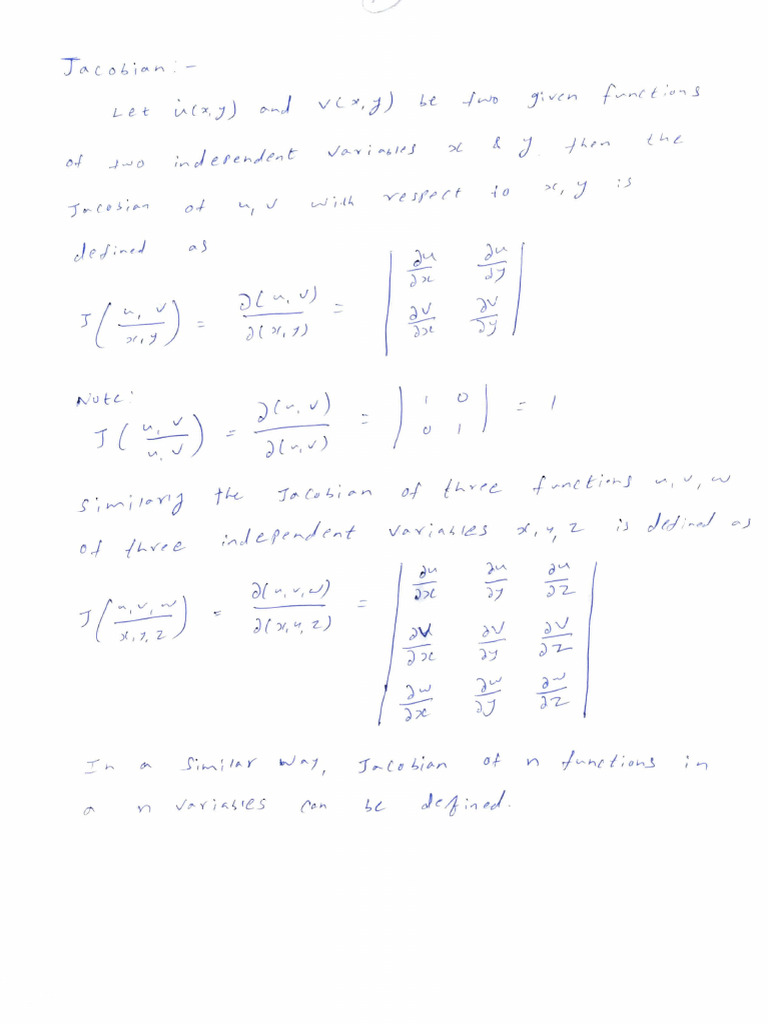 Jacobian :-
Let u(x,y) and v(x,y) be two given functions
of two independent variables x & y then the
Jacobian of u, v with respect to x, y is
defined as
J(u, v / x, y) = ∂(u, v) / ∂(x, y) = | ∂u/∂x ∂u/∂y ; ∂v/∂x ∂v/∂y |
Note:
J(u, v / u, v) = ∂(u, v) / ∂(u, v) = | 1 0 ; 0 1 | = 1
Similarly the Jacobian of three functions u, v, w
of three independent variables x, y, z is defined as
J(u, v, w / x, y, z) = ∂(u, v, w) / ∂(x, y, z) = | ∂u/∂x ∂u/∂y ∂u/∂z ; ∂v/∂x ∂v/∂y ∂v/∂z ; ∂w/∂x ∂w/∂y ∂w/∂z |
In a similar way, Jacobian of n functions in
a n variables can be defined.